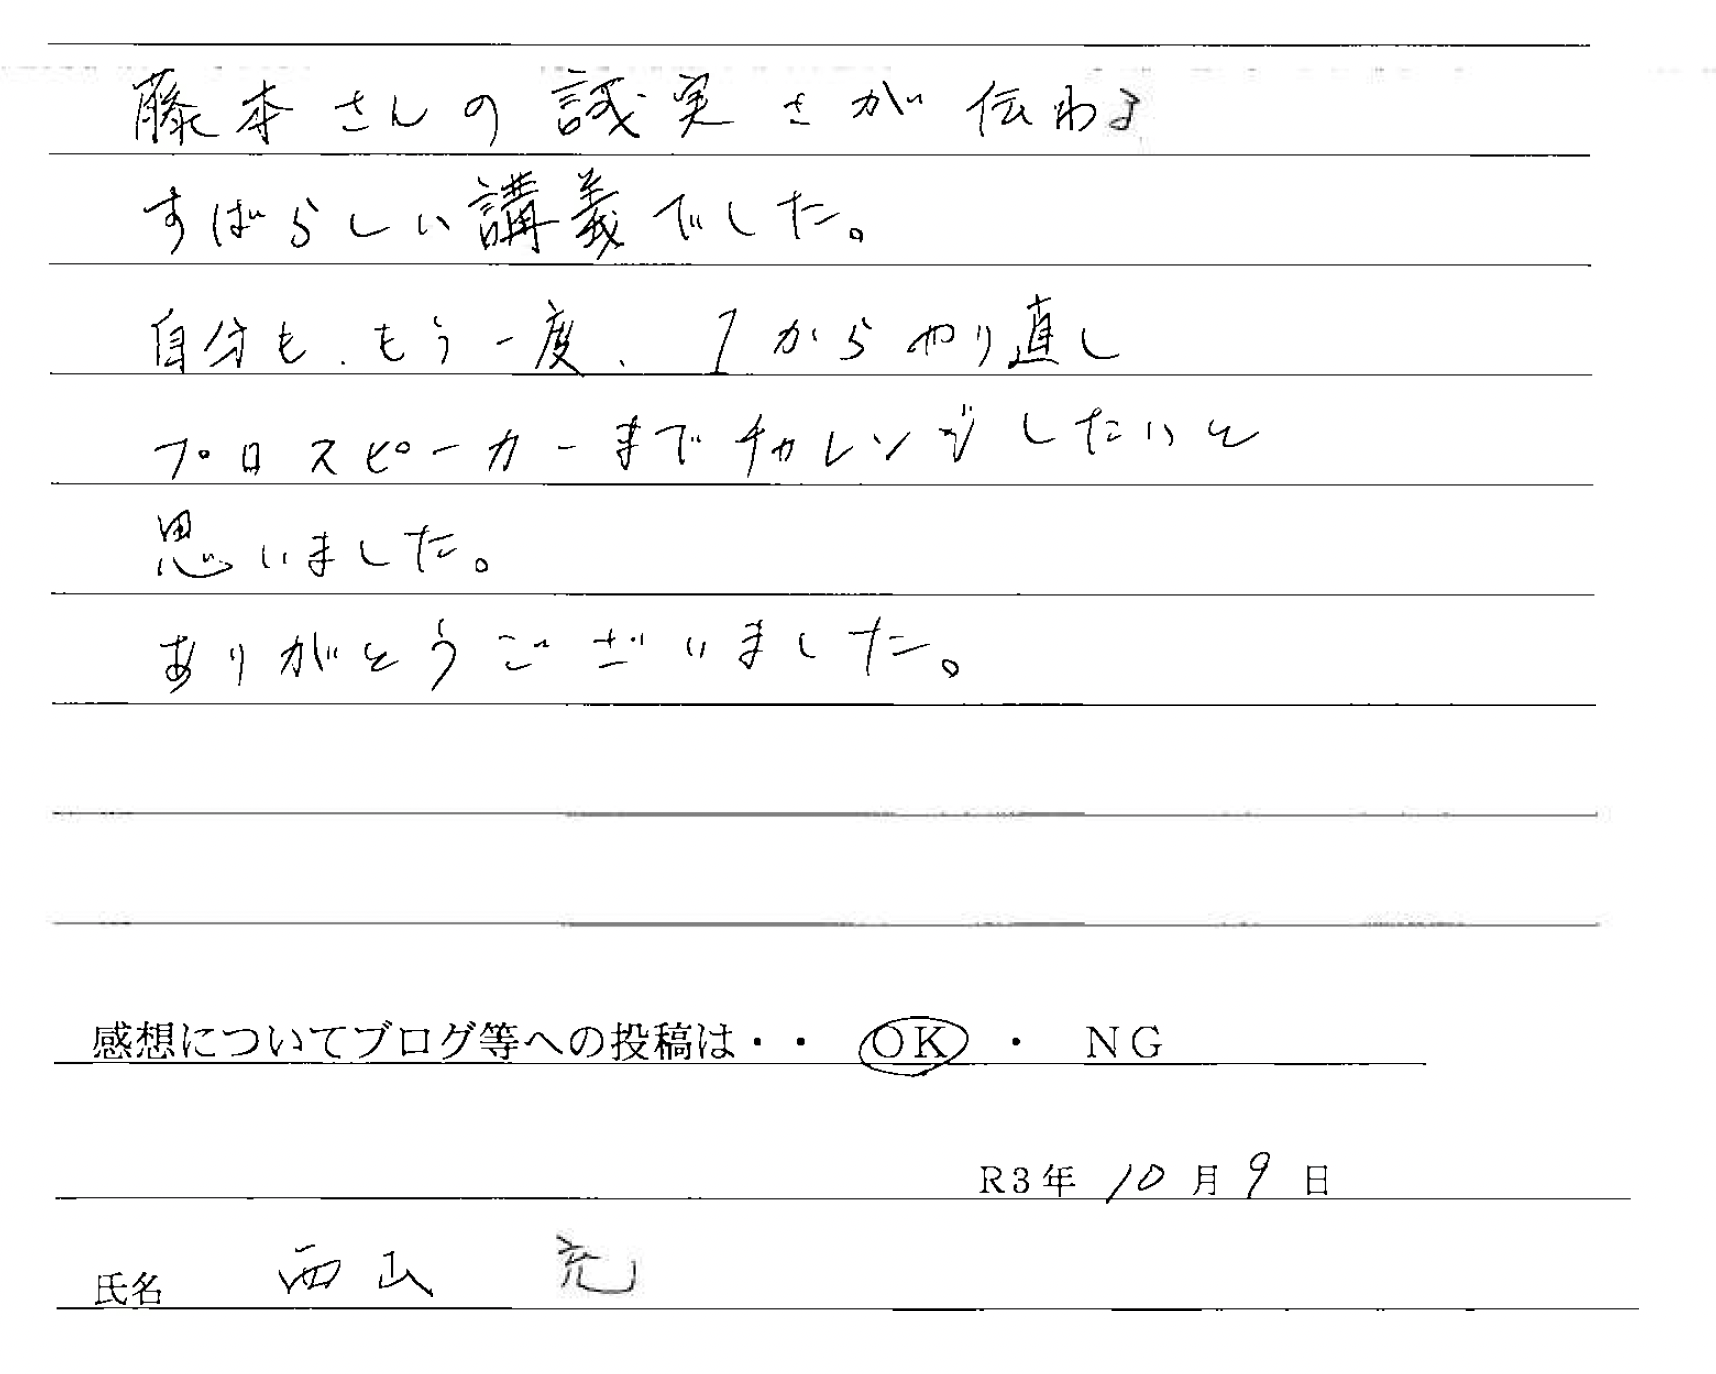 藤本さんの誠実さが伝わる
すばらしい講義でした。
自分も、もう一度、1からやり直し
プロスピーカーまでチャレンジしたいと
思いました。
ありがとうございました。
感想についてブログ等への投稿は・・ OK ・ NG
R3年 10月9日
氏名 西山 充